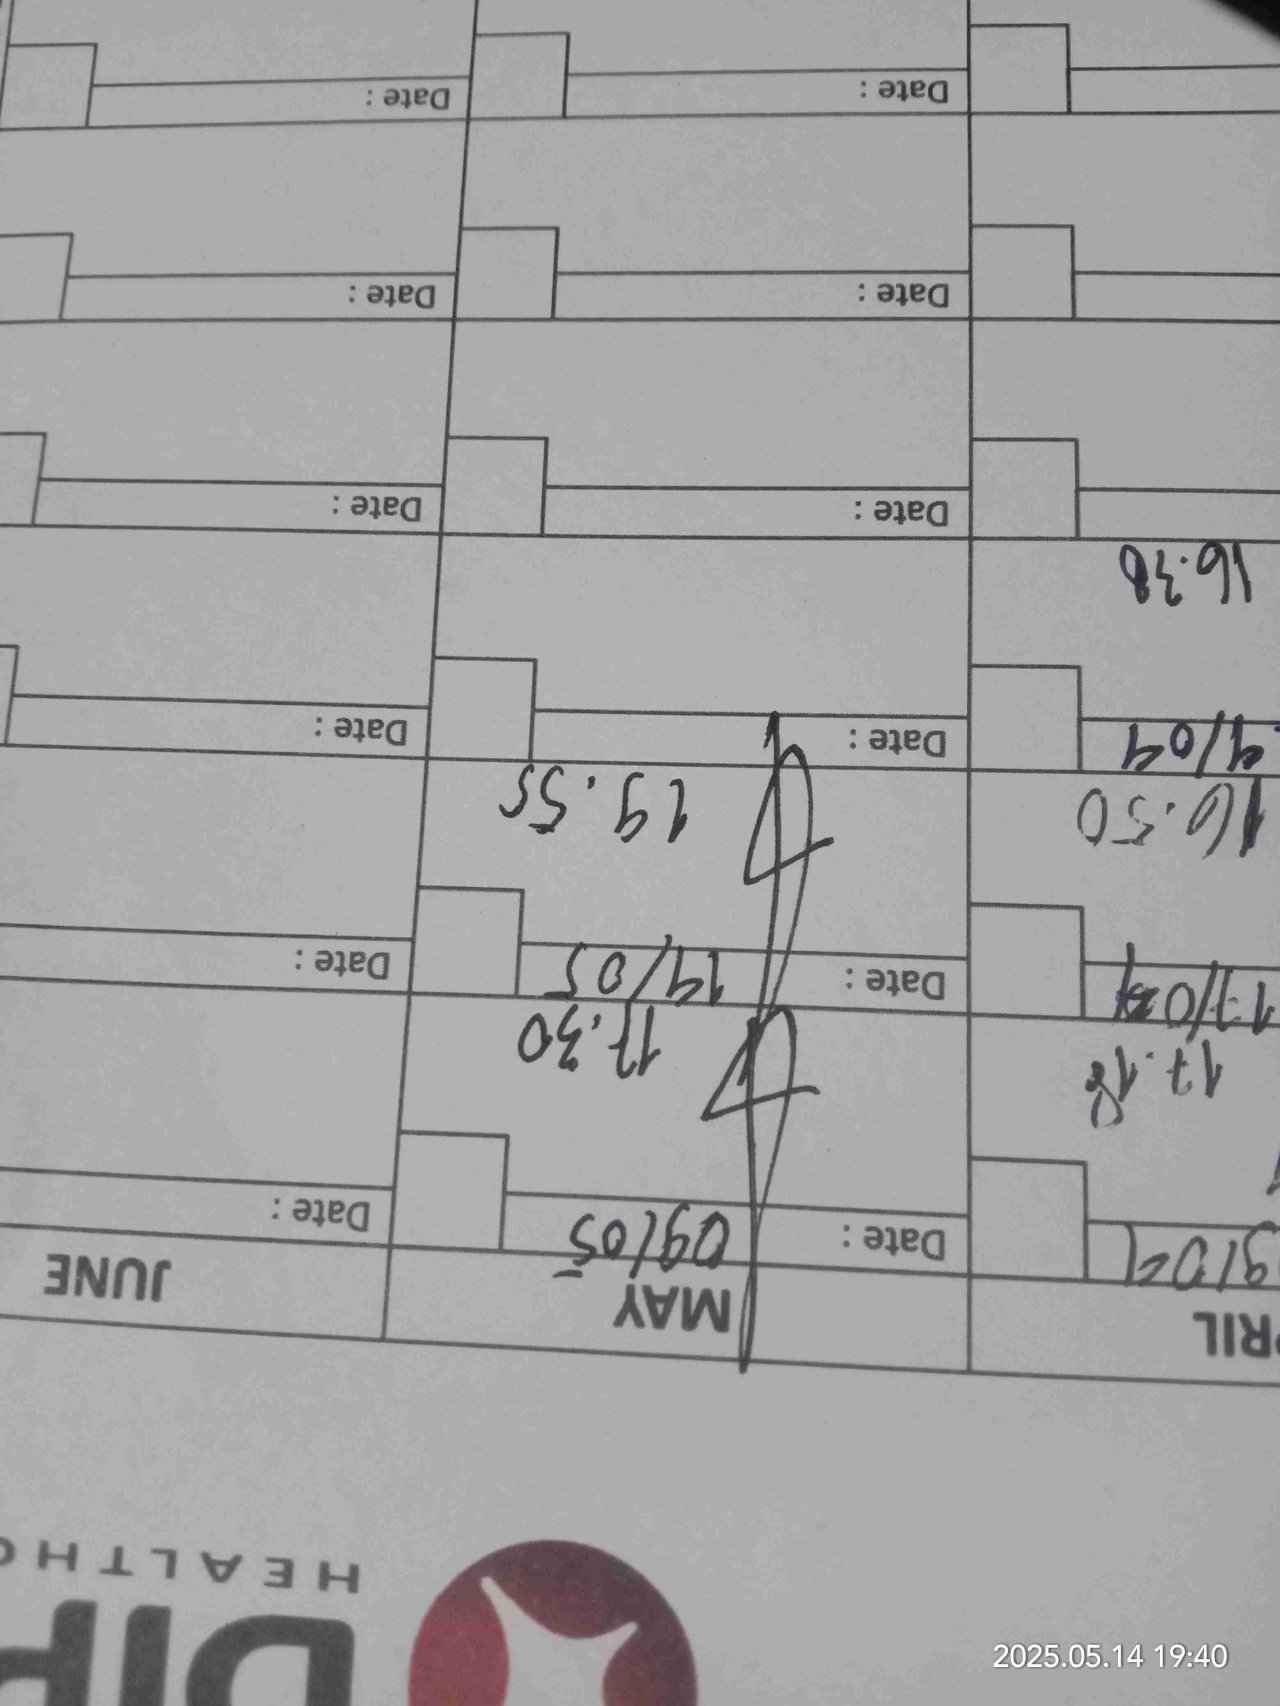 DIP
HEALTHC
PRIL MAY JUNE
9/04 Date : 09/05 Date :
17.18 17.30
17/04 Date : 14/05 Date :
16.50 19.55
Date : Date :
16.38
Date : Date :
Date : Date :
Date : Date :
2025.05.14 19:40